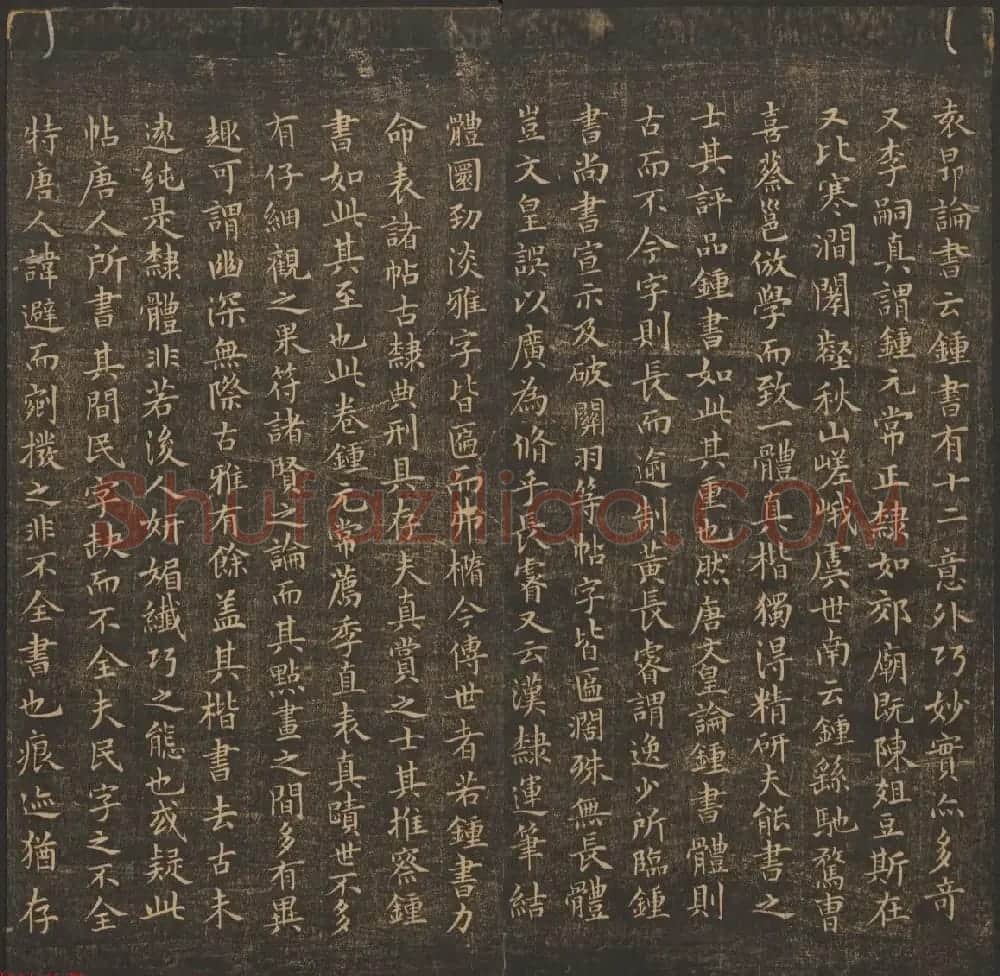 袁昂論書云鍾書有十二意外巧妙實亦多奇
又李嗣真謂鍾元常正隸如郊廟既陳俎豆斯在
又比寒澗閴壑秋山嵯峨虞世南云鍾繇馳騖曹
喜蔡邕倣學而致一體真楷獨得精研夫能書之
士其評品鍾書如此其重也然唐文皇論鍾書體則
古而不今字則長而逾制黃長睿謂逸少所臨鍾
書尚書宣示及破關羽等帖字皆匾濶殊無長體
豈文皇誤以廣為脩乎長睿又云漢隸運筆結
體圜勁淡雅字皆匾而弗橢今傳世者若鍾書力
命表諸帖古隸典刑具存夫真賞之士其推察鍾
書如此其至也此卷鍾元常薦季直表真蹟世不多
有仔細觀之果符諸賢之論而其點畫之間多有異
趣可謂幽深無際古雅有餘盖其楷書去古未
逺純是隸體非若後人姸媚纖巧之態也或疑此
帖唐人所書其間民字缺而不全夫民字之不全
特唐人諱避而剜撥之非不全書也痕迹猶存
Shufaziliao.COM